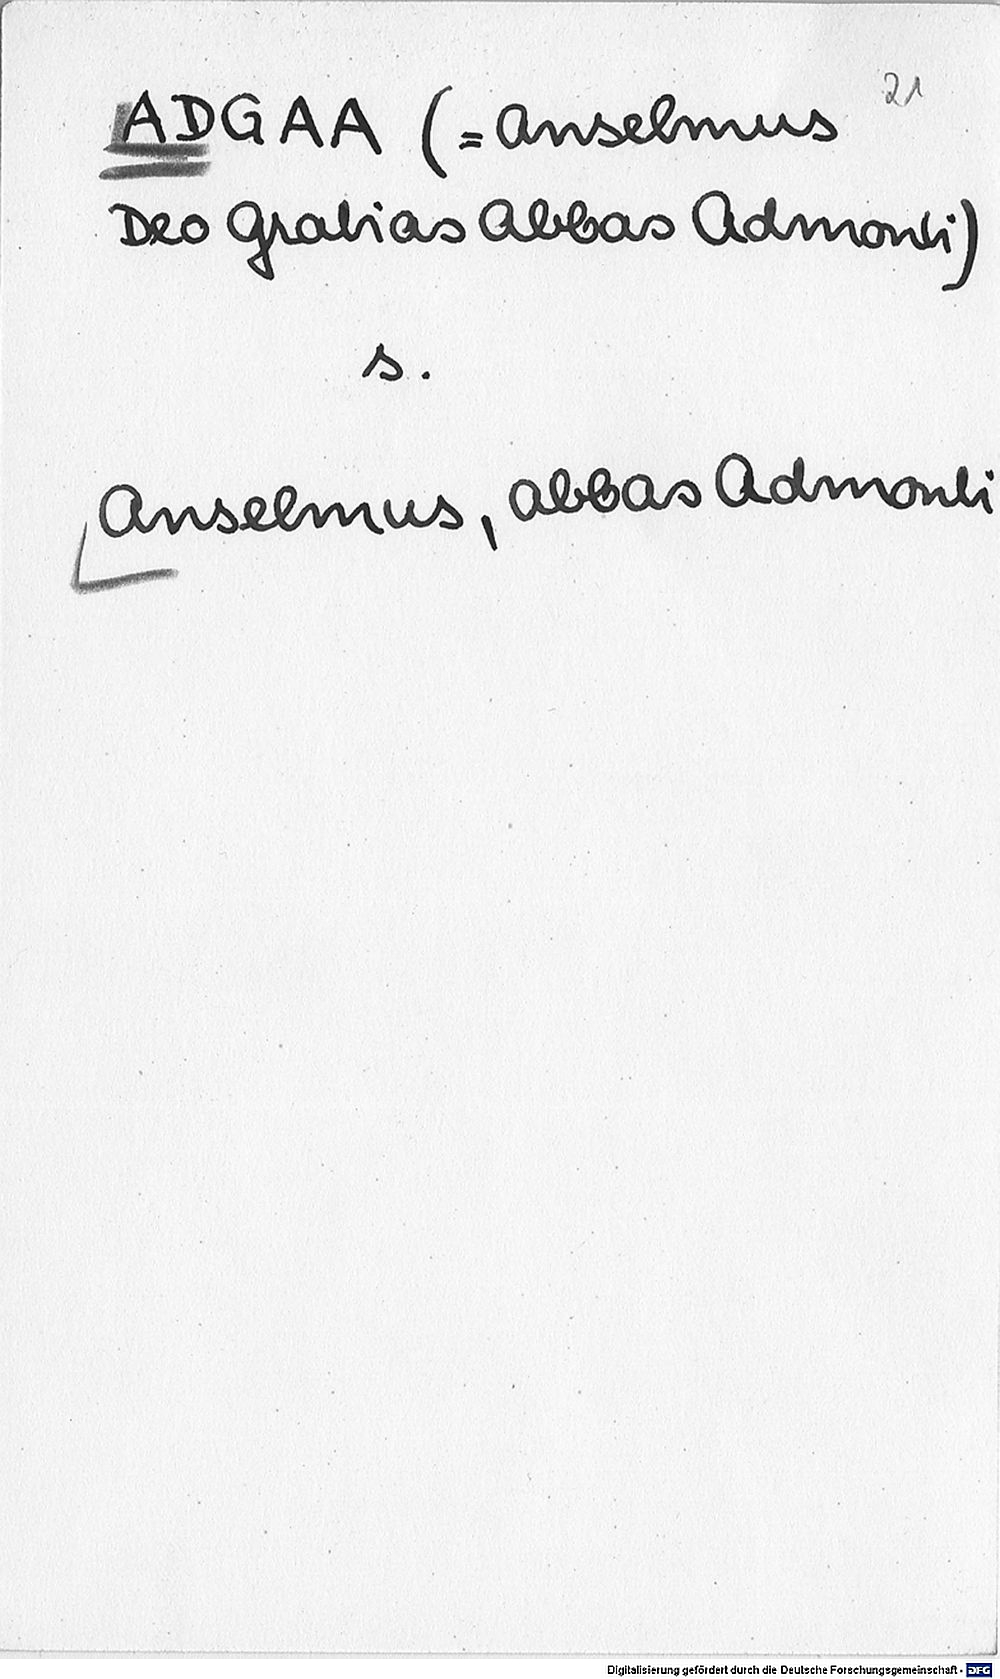 21
ADGAA (= Anselmus
Deo Gratias Abbas Admonti)
s.
Anselmus, abbas Admonti
Digitalisierung gefördert durch die Deutsche Forschungsgemeinschaft - DFG